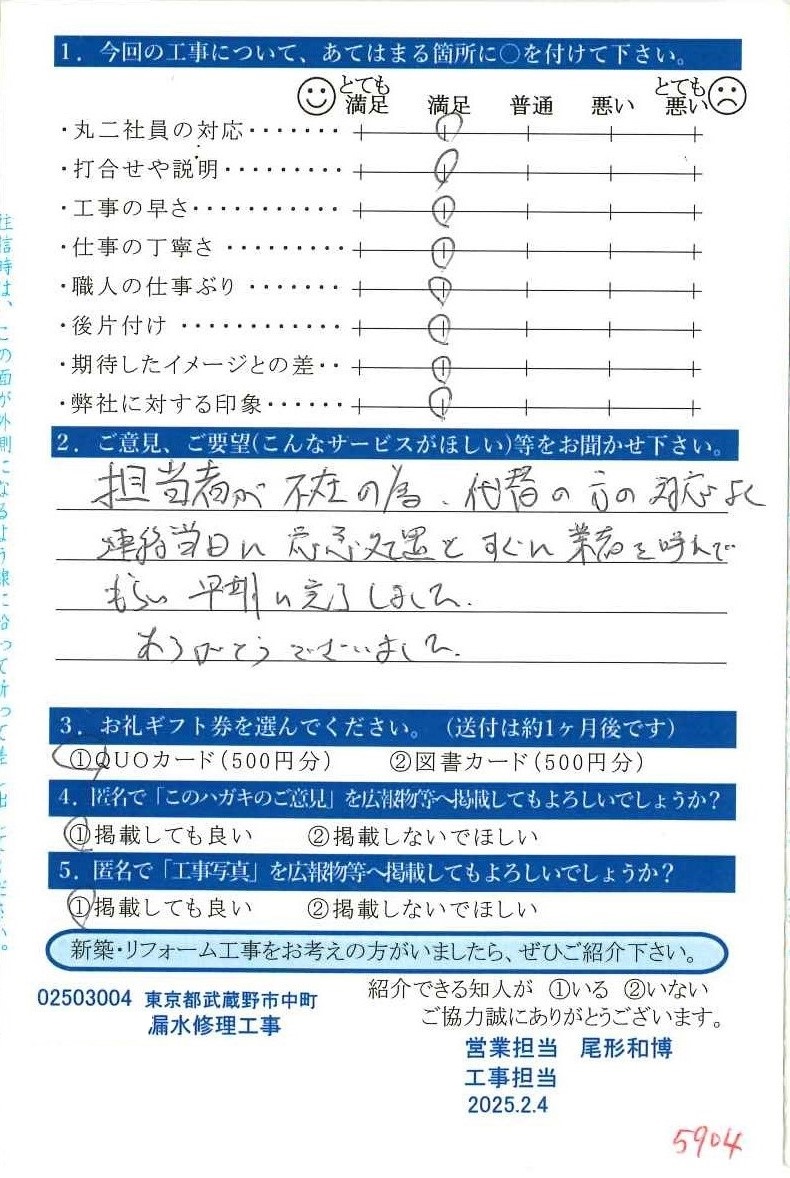 1. 今回の工事について、あてはまる箇所に○を付けて下さい。
とても満足 満足 普通 悪い とても悪い
・丸二社員の対応・・・・・・・
・打合せや説明・・・・・・・・・
・工事の早さ・・・・・・・・・・・
・仕事の丁寧さ ・・・・・・・・・
・職人の仕事ぶり ・・・・・・・
・後片付け ・・・・・・・・・・・・
・期待したイメージとの差・・
・弊社に対する印象・・・・・・
2. ご意見、ご要望(こんなサービスがほしい)等をお聞かせ下さい。
担当者が不在の為、代替の方の対応よく
連絡当日に応急処置とすぐに業者を呼んで
もらい早期に完了しました。
ありがとうございました。
3. お礼ギフト券を選んでください。(送付は約1ヶ月後です)
①QUOカード(500円分) ②図書カード(500円分)
4. 匿名で「このハガキのご意見」を広報物等へ掲載してもよろしいでしょうか?
①掲載しても良い ②掲載しないでほしい
5. 匿名で「工事写真」を広報物等へ掲載してもよろしいでしょうか?
①掲載しても良い ②掲載しないでほしい
新築・リフォーム工事をお考えの方がいましたら、ぜひご紹介下さい。
紹介できる知人が ①いる ②いない
ご協力誠にありがとうございます。
02503004 東京都武蔵野市中町
漏水修理工事
営業担当 尾形和博
工事担当
2025.2.4
5904